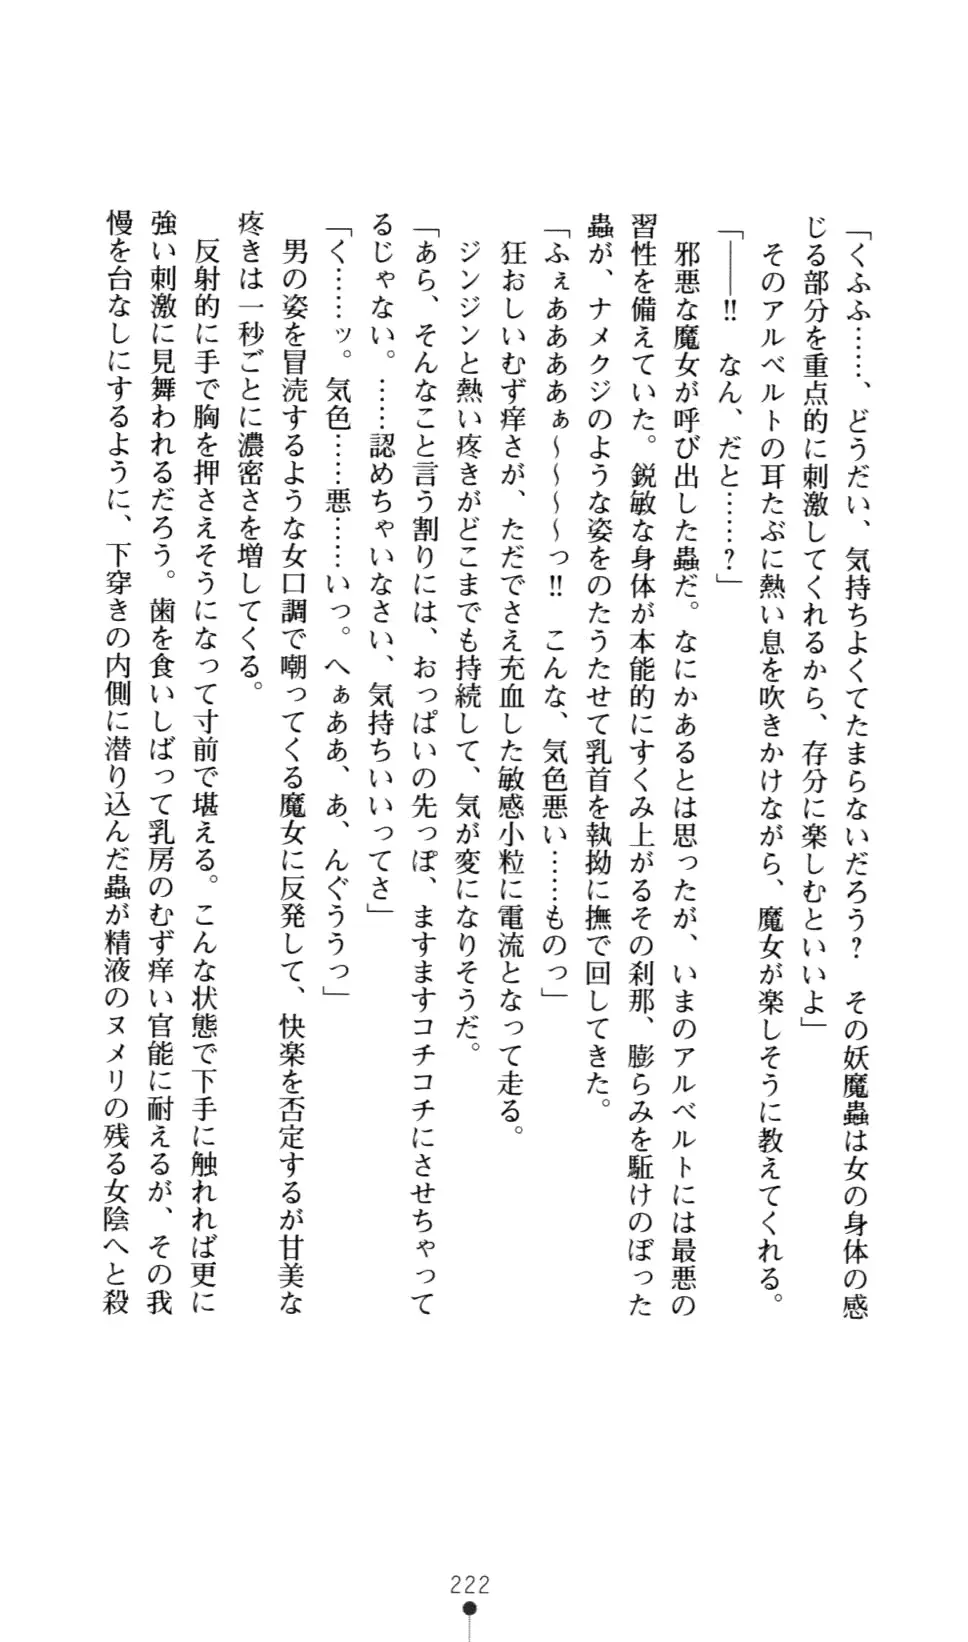 「くふふ……、どうだい、気持ちよくてたまらないだろう？　その妖魔蟲は女の身体の感
じる部分を重点的に刺激してくれるから、存分に楽しむといいよ」
　そのアルベルトの耳たぶに熱い息を吹きかけながら、魔女が楽しそうに教えてくれる。
「――!!　なん、だと……？」
　邪悪な魔女が呼び出した蟲だ。なにかあるとは思ったが、いまのアルベルトには最悪の
習性を備えていた。鋭敏な身体が本能的にすくみ上がるその刹那、膨らみを駈けのぼった
蟲が、ナメクジのような姿をのたうたせて乳首を執拗に撫で回してきた。
「ふぇああああぁ～～～～っ!!　こんな、気色悪い……ものっ」
　狂おしいむず痒さが、ただでさえ充血した敏感小粒に電流となって走る。
　ジンジンと熱い疼きがどこまでも持続して、気が変になりそうだ。
「あら、そんなこと言う割りには、おっぱいの先っぽ、ますますコチコチにさせちゃって
るじゃない。……認めちゃいなさい、気持ちいいってさ」
「く……ッ。気色……悪……いっ。へぁああ、あ、んぐううっ」
　男の姿を冒涜するような女口調で嘲ってくる魔女に反発して、快楽を否定するが甘美な
疼きは一秒ごとに濃密さを増してくる。
　反射的に手で胸を押さえそうになって寸前で堪える。こんな状態で下手に触れれば更に
強い刺激に見舞われるだろう。歯を食いしばって乳房のむず痒い官能に耐えるが、その我
慢を台なしにするように、下穿きの内側に潜り込んだ蟲が精液のヌメリの残る女陰へと殺
222